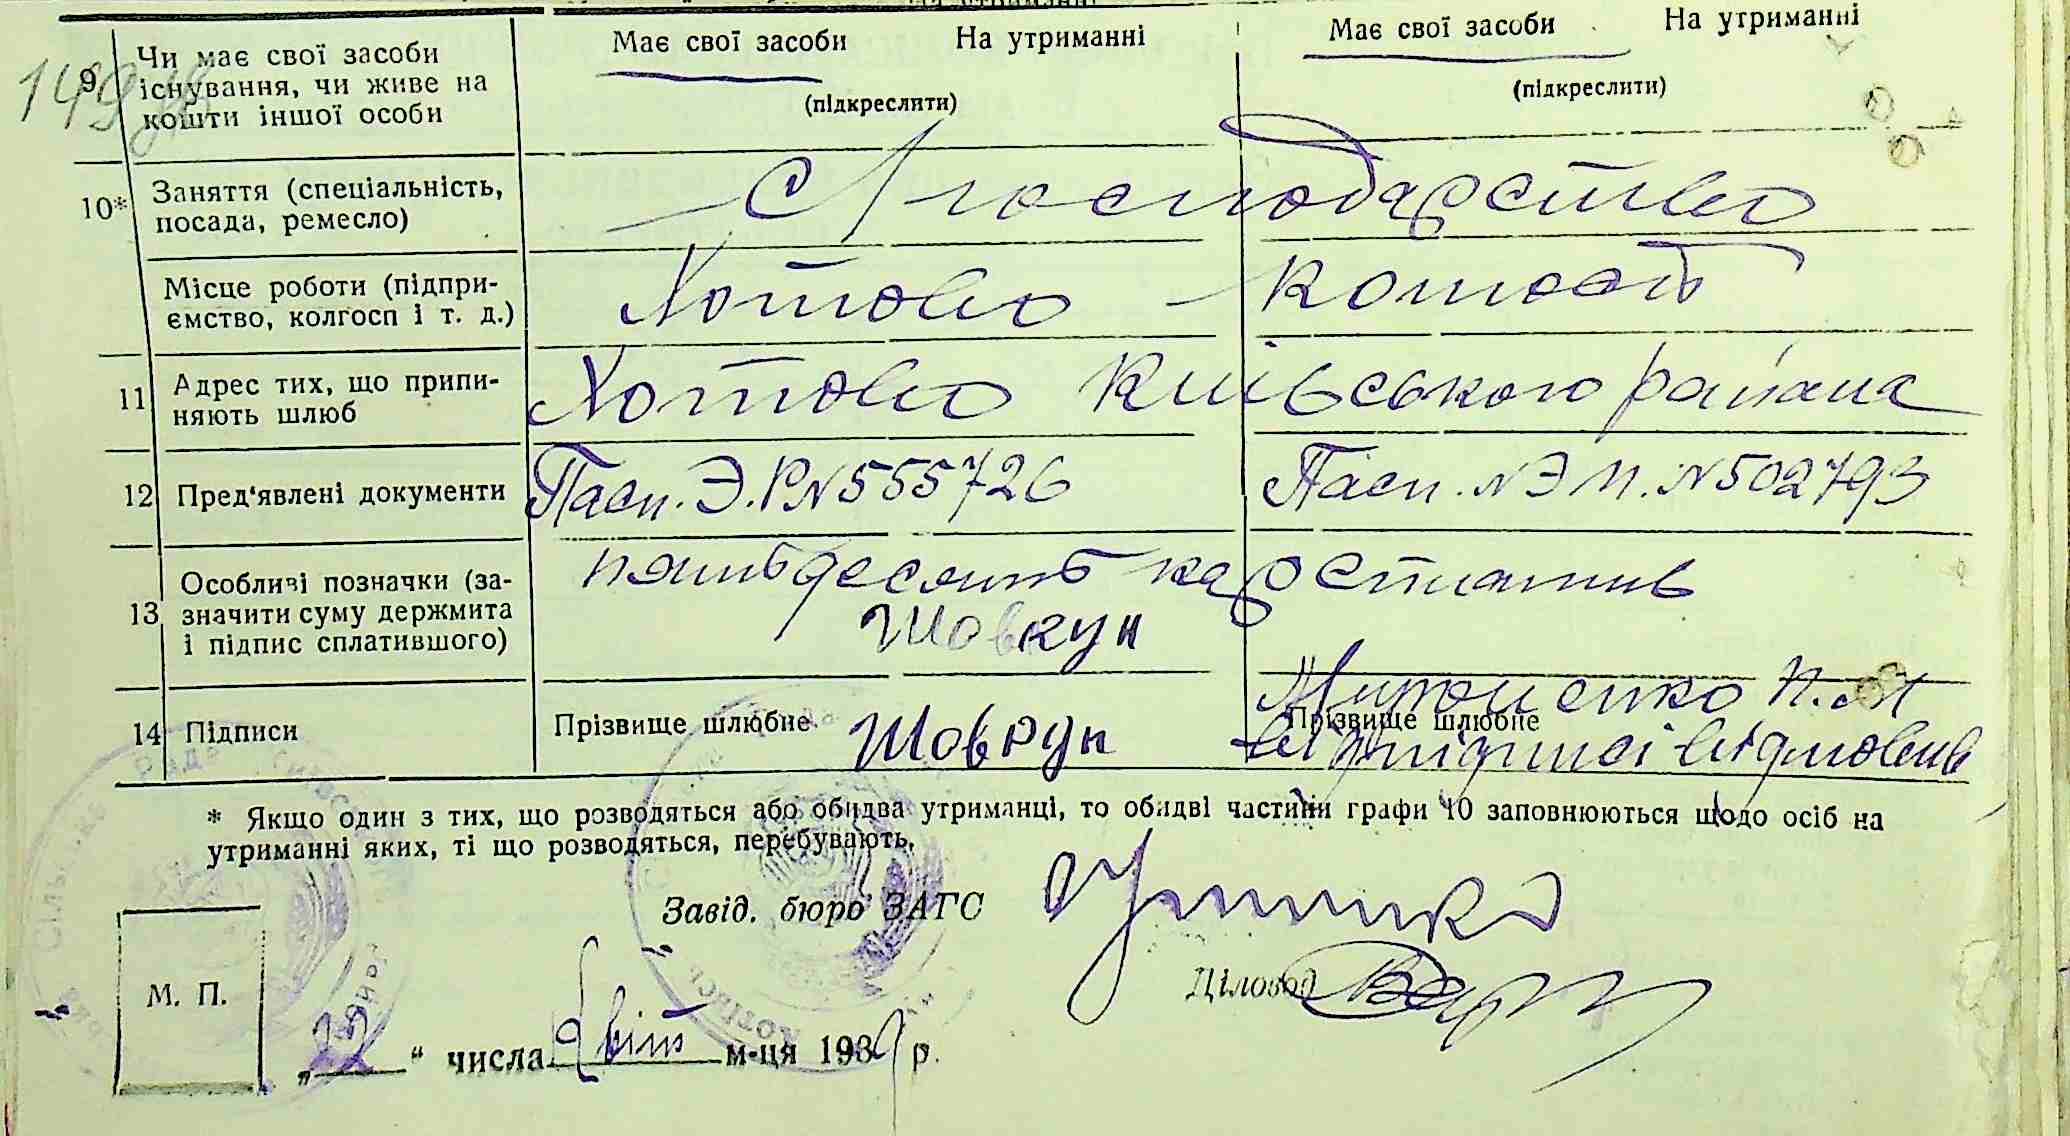 Має свої засоби На утриманні Має свої засоби На утриманні
9 Чи має свої засоби
існування, чи живе на
кошти іншої особи
(підкреслити) (підкреслити)
149
10* Заняття (спеціальність,
посада, ремесло)
С/господарство
Місце роботи (підпри-
ємство, колгосп і т. д.)
Хотово -
11 Адрес тих, що припи-
няють шлюб
Хотово Київського района
12 Пред'явлені документи
Пасп. Э.Р N 555726 Пасп. N Э М. N 502793
13 Особливі позначки (за-
значити суму держмита
і підпис сплатившого)
пятьдесять кар
Шовкун
14 Підписи
Прізвище шлюбне Шовкун
Мироненко П. М
Прізвище шлюбне
від підписі відмовив
* Якщо один з тих, що розводяться або обидва утриманці, то обидві частини графи 10 заповнюються щодо осіб на
утриманні яких, ті що розводяться, перебувають.
Завід. бюро ЗАГС
Діловод
М. П.
„ “ числа квіт м-ця 1939 р.